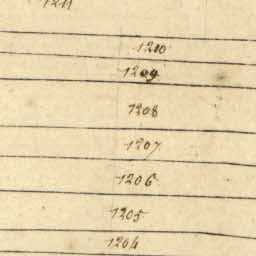 1211
1210
1209
1208
1207
1206
1205
1204